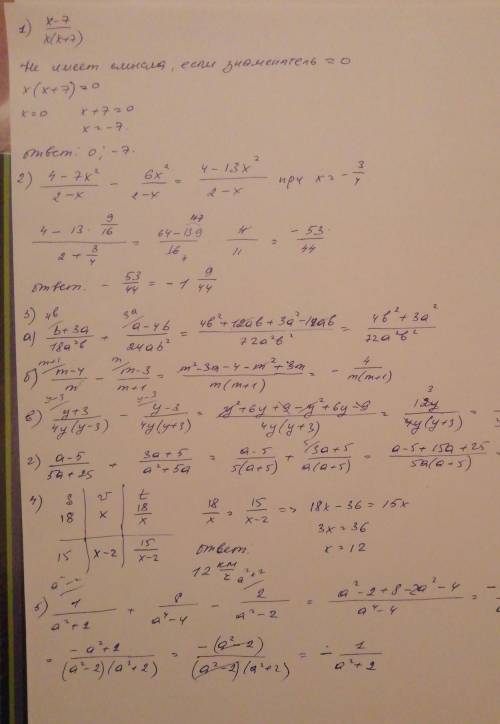 1) (x-7)/(x(x+7))
Не имеет смысла, если знаменатель = 0
x(x+7)=0
x=0 x+7=0
x=-7.
ответ: 0; -7.
2) (4-7x²)/(2-x) - 6x²/(2-x) = (4-13x²)/(2-x) при x = -3/4
(4-13·9/16)/(2+3/4) = (64-13·9)/16 · 4/11 = -53/44
ответ: -53/44 = -1 9/44
3) а) (b+3a)/(18a²b) + (a-4b)/(24ab²) = (4b²+12ab+3a²-12ab)/(72a²b²) = (4b²+3a²)/(72a²b²)
б) (m-4)/m - (m-3)/(m+1) = (m²-3m-4-m²+3m)/(m(m+1)) = -4/(m(m+1))
в) (y+3)/(4y(y-3)) - (y-3)/(4y(y+3)) = (y²+6y+9-y²+6y-9)/(4y(y+3)) = 12y/(4y(y+3)) =
г) (a-5)/(5a+25) + (3a+5)/(a²+5a) = (a-5)/(5(a+5)) + (3a+5)/(a(a+5)) = (a-5+15a+25)/(5a(a+5)) =
4) S v t
18 x 18/x 18/x = 15/(x-2) => 18x-36=15x
3x=36
15 x-2 15/(x-2) ответ: x=12
12 км/ч
1/(a²+2) + 8/(a⁴-4) - 2/(a²-2) = (a²-2+8-2a²-4)/(a⁴-4) =
= (-a²+2)/((a²-2)(a²+2)) = -(a²-2)/((a²-2)(a²+2)) = -1/(a²+2)